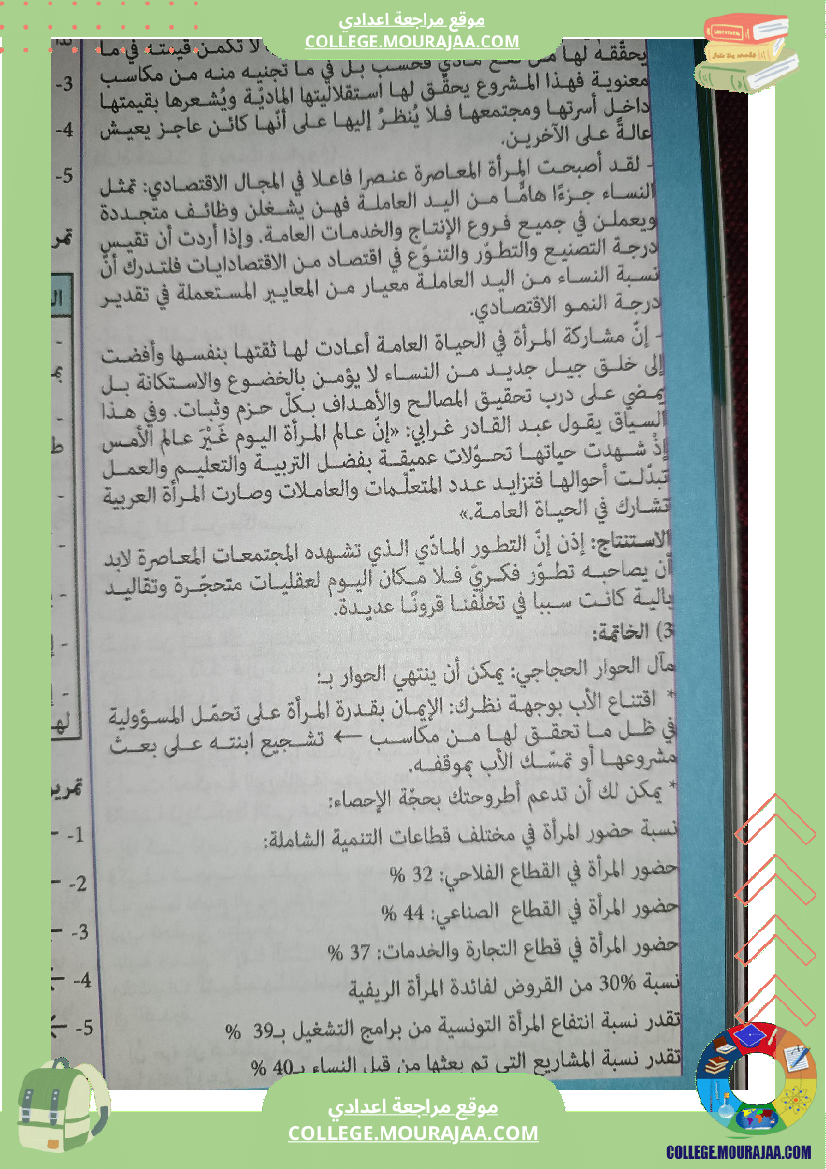 موقع مراجعة اعدادي
COLLEGE.MOURAJAA.COM
يحقّقه لها من نفع مادي فحسب بل في ما تجنيه منه من مكاسب
لا تكمن قيمته في ما
معنوية فهذا المشروع يحقّق لها استقلاليتها الماديّة ويُشعرها بقيمتها
داخل أسرتها ومجتمعها فلا يُنظرُ إليها على أنّها كائن عاجز يعيش
عالةً على الآخرين.
- لقد أصبحت المرأة المعاصرة عنصرا فاعلا في المجال الاقتصادي: تمثل
النساء جزءًا هامًّا من اليد العاملة فهن يشغلن وظائف متجددة
ويعملن في جميع فروع الإنتاج والخدمات العامة. وإذا أردت أن تقيس
درجة التصنيع والتطوّر والتنوّع في اقتصاد من الاقتصادايات فلتدرك أنّ
نسبة النساء من اليد العاملة معيار من المعايير المستعملة في تقدير
درجة النمو الاقتصادي.
- إنّ مشاركة المرأة في الحياة العامة أعادت لها ثقتها بنفسها وأفضت
إلى خلق جيل جديد من النساء لا يؤمن بالخضوع والاستكانة بل
يمضي على درب تحقيق المصالح والأهداف بكلّ حزم وثبات. وفي هذا
السياق يقول عبد القادر غرابي: «إنّ عالم المرأة اليوم غَيْرَ عالم الأمس
إذْ شهدت حياتها تحوّلات عميقة بفضل التربية والتعليم والعمل
تبدّلت أحوالها فتزايد عدد المتعلّمات والعاملات وصارت المرأة العربية
تشارك في الحياة العامة.»
الاستنتاج: إذن إنّ التطور المادّي الذي تشهده المجتمعات المعاصرة لابد
أن يصاحبه تطوّر فكريّ فلا مكان اليوم لعقليات متحجّرة وتقاليد
بالية كانت سببا في تخلّفنا قرونًا عديدة.
3) الخاتمة:
مآل الحوار الحجاجي: يمكن أن ينتهي الحوار بـ:
* اقتناع الأب بوجهة نظرك: الإيمان بقدرة المرأة على تحمّل المسؤولية
في ظل ما تحقق لها من مكاسب ← تشجيع ابنته على بعث
مشروعها أو تمسّك الأب بموقفه.
* يمكن لك أن تدعم أطروحتك بحجّة الإحصاء:
نسبة حضور المرأة في مختلف قطاعات التنمية الشاملة:
حضور المرأة في القطاع الفلاحي: 32 %
حضور المرأة في القطاع الصناعي: 44 %
حضور المرأة في قطاع التجارة والخدمات: 37 %
نسبة 30% من القروض لفائدة المرأة الريفية
تقدر نسبة انتفاع المرأة التونسية من برامج التشغيل بـ39 %
تقدر نسبة المشاريع التي تم بعثها من قبل النساء بـ40 %
3-
4-
5-
1-
2-
3-
4-
5-
موقع مراجعة اعدادي
COLLEGE.MOURAJAA.COM
COLLEGE.MOURAJAA.COM